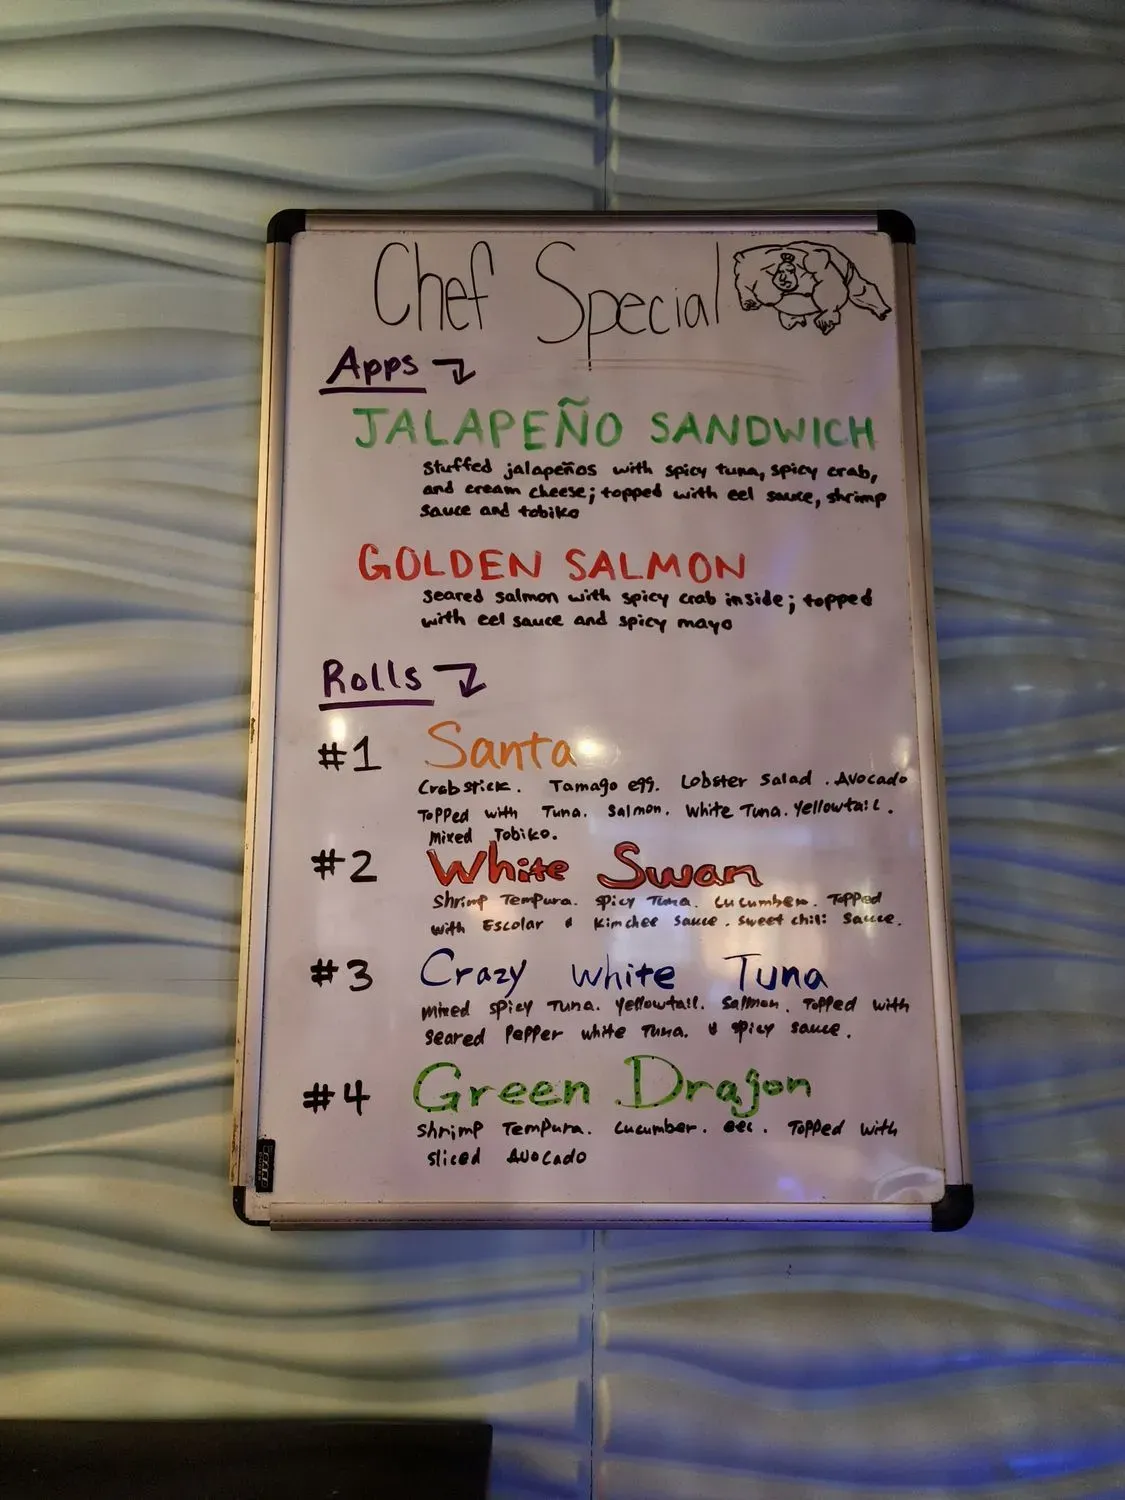 Chef Special
Apps
JALAPEÑO SANDWICH
stuffed jalapeños with spicy tuna, spicy crab,
and cream cheese; topped with eel sauce, shrimp
sauce and tobiko
GOLDEN SALMON
seared salmon with spicy crab inside; topped
with eel sauce and spicy mayo
Rolls
#1 Santa
Crab stick. Tamago egg. Lobster Salad. Avocado
Topped with Tuna. Salmon. White Tuna. Yellowtail.
Mixed Tobiko.
#2 White Swan
Shrimp Tempura. Spicy Tuna. Cucumber. Topped
with Escolar & Kimchee Sauce. Sweet chili Sauce.
#3 Crazy White Tuna
Mixed Spicy Tuna. Yellowtail. Salmon. Topped with
Seared Pepper white Tuna. & Spicy Sauce.
#4 Green Dragon
Shrimp Tempura. Cucumber. eel. Topped with
sliced Avocado